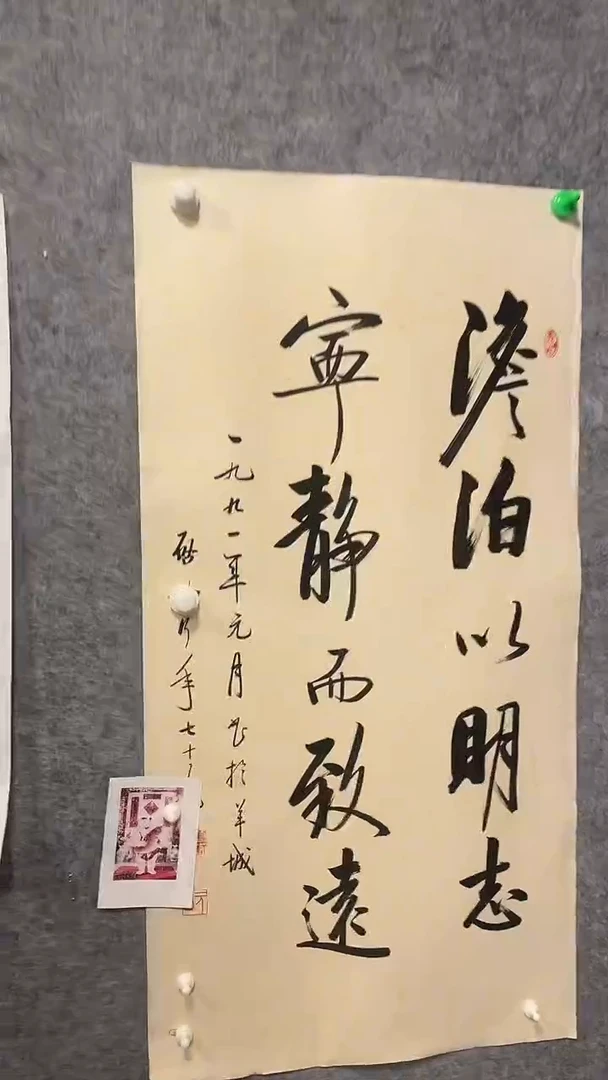 澹泊以明志
寧靜而致遠
一九九一年元月书於羊城
啟 年七十